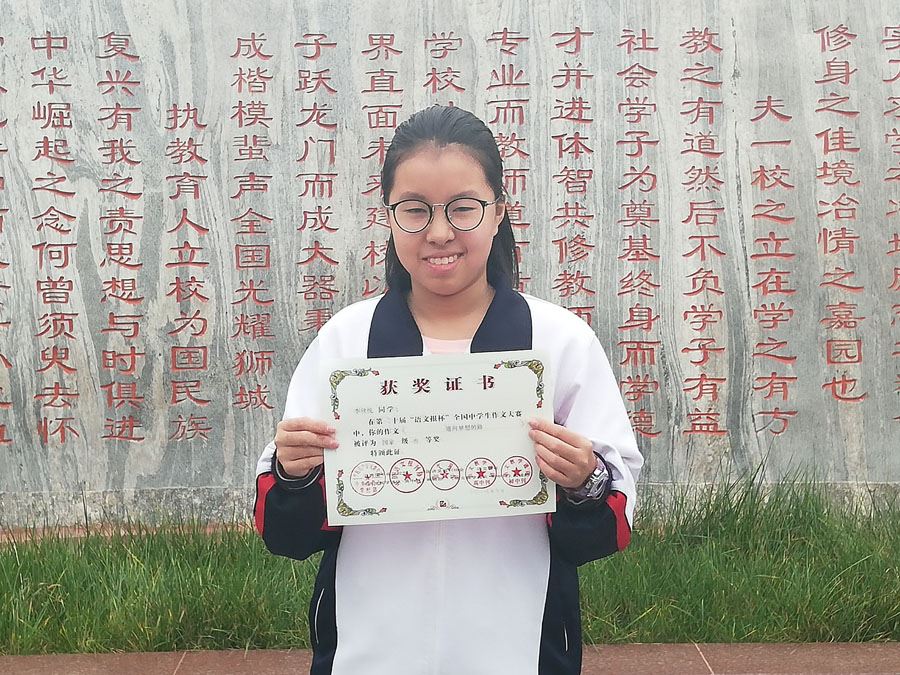 修身之佳境冶情之嘉园也
夫一校之立在学之有方
教之有道然后不负学子有益
社会学子为奠基终身而学德
才并进体智共修教
专业而教师道
学校
界直面未来建校以
子跃龙门而成大器秉
成楷模蜚声全国光耀狮城
执教育人立校为国民族
复兴有我之责思想与时俱进
中华崛起之念何曾须臾去怀
获奖证书
同学：
在第二十届“语文报杯”全国中学生作文大赛
中，你的作文 通向梦想的路
被评为 国家 级 等奖
特颁此证